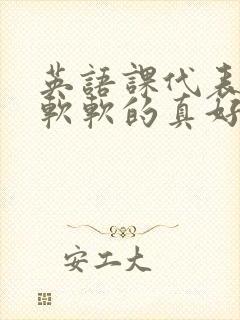 英語課代表
軟軟的真好
安工大